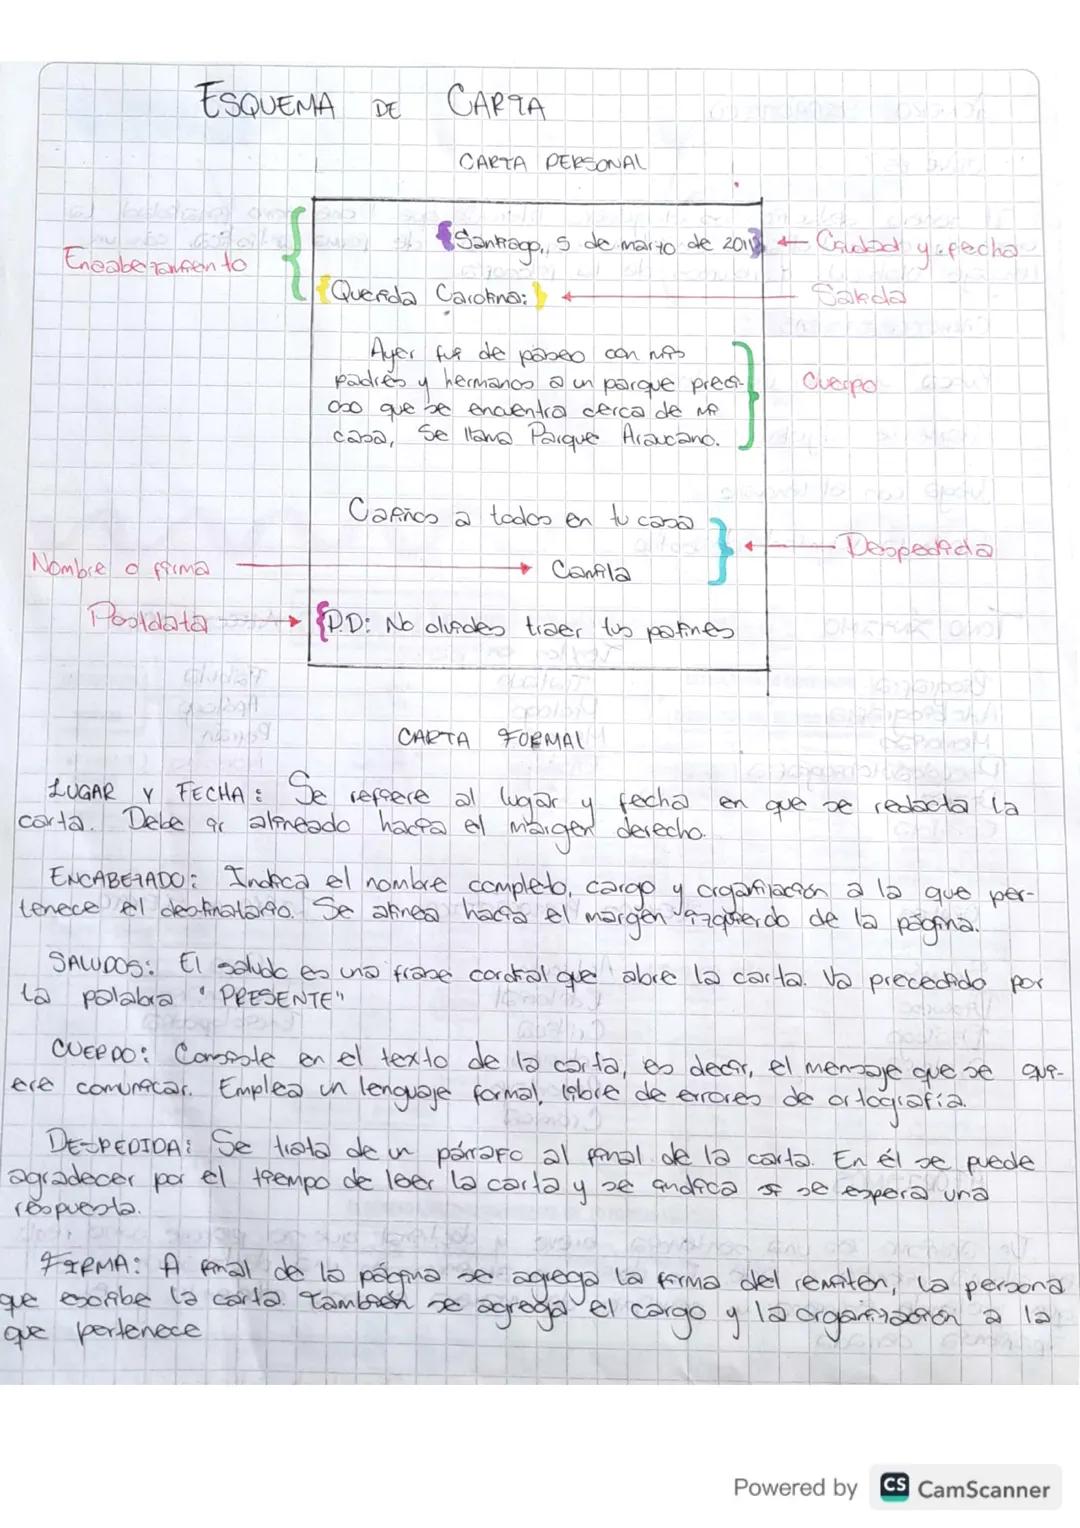 ESQUEMA DE CARTA
CARTA PERSONAL
Encabezamiento
Santiago, 5 de marzo de 2011
Ciudad y fecha
Querida Carolina:
Ayer fui de paseo con mis
padres y hermanos a un parque preci-
oso que se encuentra cerca de mi
casa, Se llama Parque Araucano.
Cuerpo
Cariños a todos en tu casa
Despedida
Nombre o firma
Camila
Postdata
P.D: No olvides traer tus patines
CARTA FORMAL
LUGAR Y FECHA: Se refiere al lugar y fecha en que se redacta la
carta. Debe ir alineado hacia el margen derecho.
ENCABEZADO: Indica el nombre completo, cargo y organización a la que per-
tenece el destinatario. Se alinea hacia el margen izquierdo de la página.
SALUDOS: El saludo es una frase cordial que abre la carta. Va precedido por
la palabra "PRESENTE"
CUERPO: Consiste en el texto de la carta, es decir, el mensaje que se qui-
ere comunicar. Emplea un lenguaje formal, libre de errores de ortografía.
DESPEDIDA: Se trata de un párrafo al final de la carta. En él se puede
agradecer por el tiempo de leer la carta y se indica si se espera una
respuesta.
FIRMA: A final de la página se agrega la firma del remiten, la persona
que escribe la carta. También se agrega el cargo y la organización a la
que pertenece
Powered by CS CamScanner